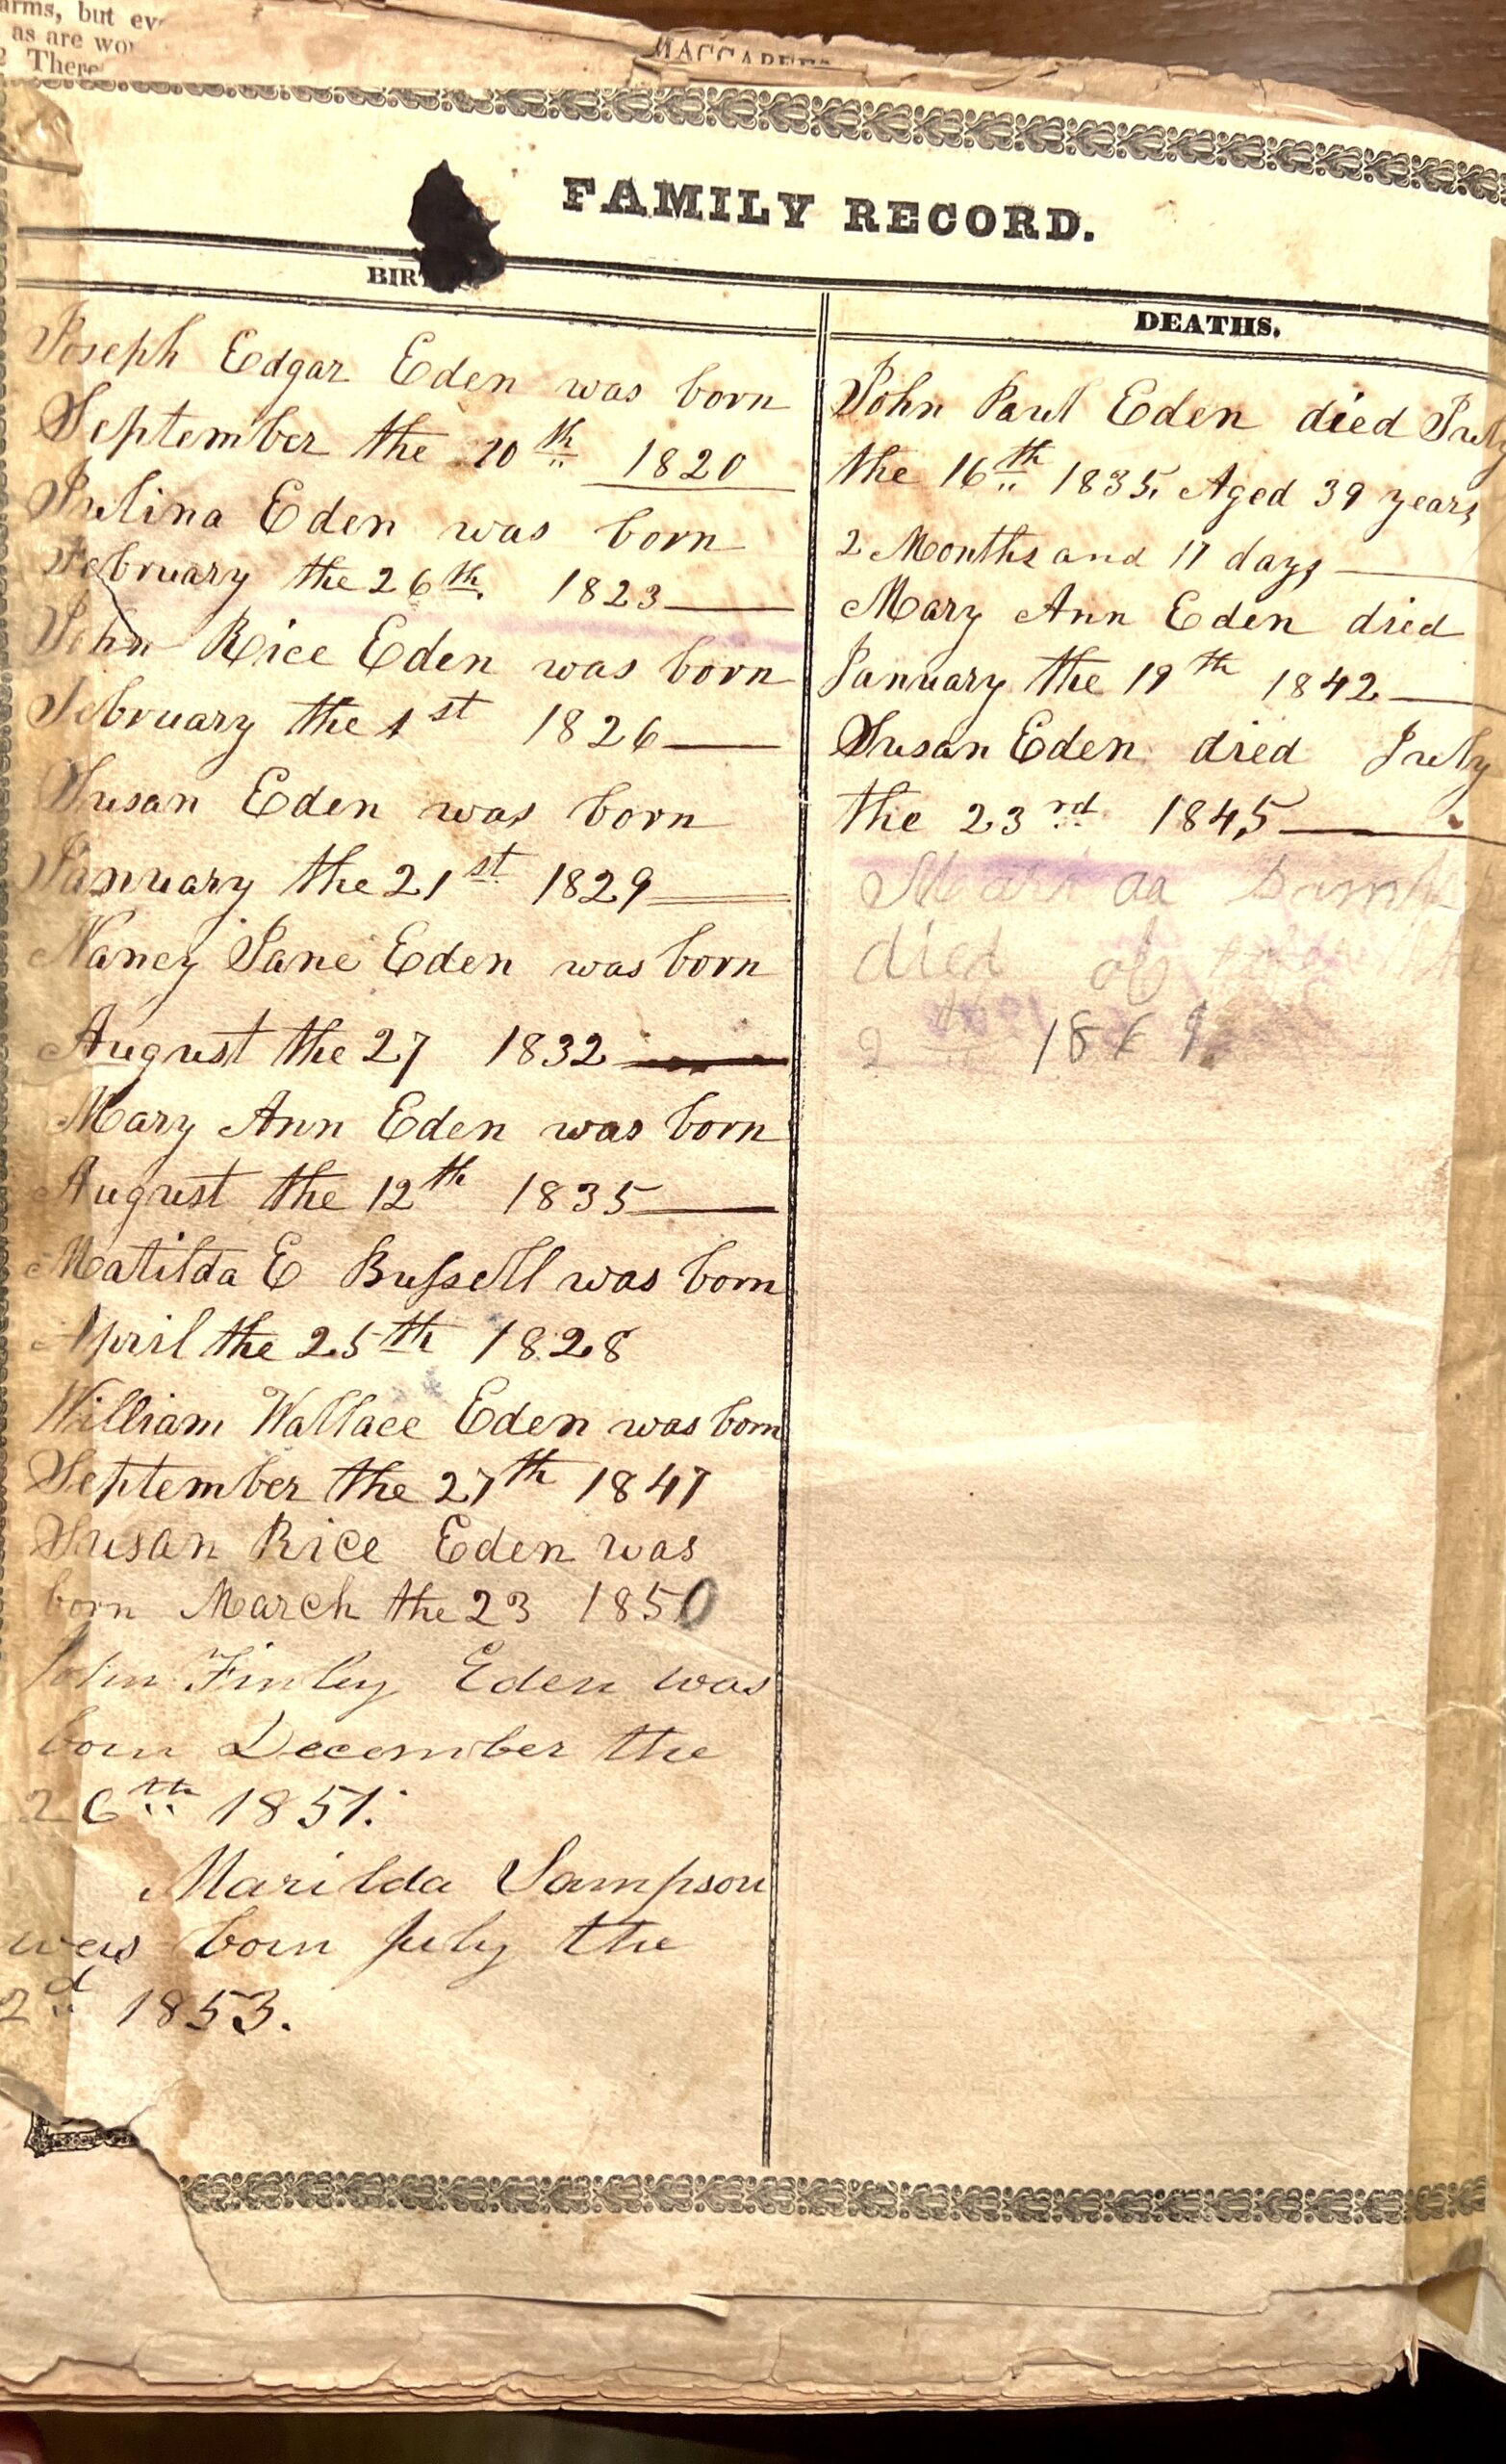 arms, but ev
as are wor
There
MACCABEES
FAMILY RECORD.
BIR
Joseph Edgar Eden was born
September the 20th 1820
Julina Eden was born
February the 26th. 1823
John Rice Eden was born
February the 1st 1826
Susan Eden was born
January the 21st 1829
Nancy Jane Eden was born
August the 27 1832
Mary Ann Eden was born
August the 12th 1835
Matilda E Bussell was born
April the 25th 1828
William Wallace Eden was born
September the 27th 1847
Susan Rice Eden was
born March the 23 1850
John Finley Eden was
born December the
26th 1851.
Marilda Sampson
was born July the
2d 1853.
DEATHS.
John Paul Eden died July
the 16th 1835. Aged 39 years
2 Months and 17 days
Mary Ann Eden died
January the 19th 1842
Susan Eden died July
the 23rd 1845
died of
2